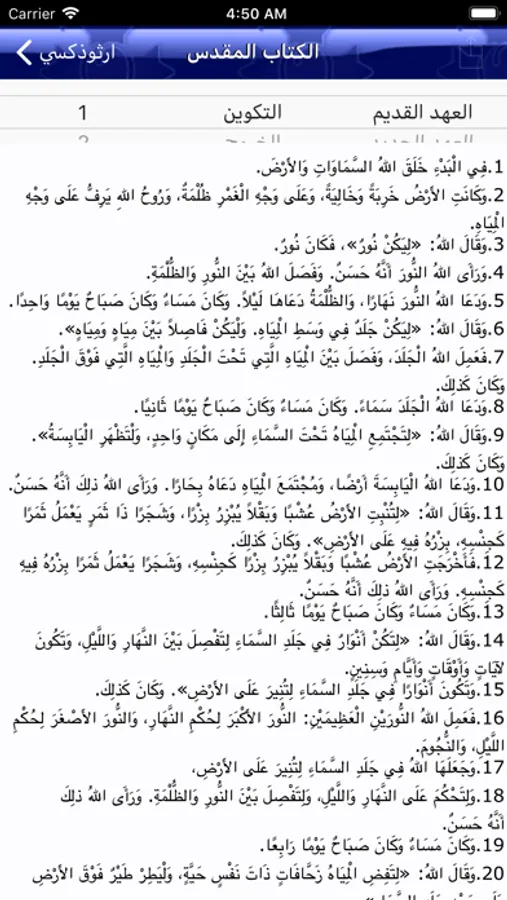 Carrier 4:50 AM
ارثوذكسي الكتاب المقدس
العهد القديم التكوين 1
العهد الجديد الخروج 2
1.فِي الْبَدْءِ خَلَقَ اللهُ السَّمَاوَاتِ وَالأَرْضَ.
2.وَكَانَتِ الأَرْضُ خَرِبَةً وَخَالِيَةً، وَعَلَى وَجْهِ الْغَمْرِ ظُلْمَةٌ، وَرُوحُ اللهِ يَرِفُّ عَلَى وَجْهِ
الْمِيَاهِ.
3.وَقَالَ اللهُ: «لِيَكُنْ نُورٌ»، فَكَانَ نُورٌ.
4.وَرَأَى اللهُ النُّورَ أَنَّهُ حَسَنٌ. وَفَصَلَ اللهُ بَيْنَ النُّورِ وَالظُّلْمَةِ.
5.وَدَعَا اللهُ النُّورَ نَهَارًا، وَالظُّلْمَةُ دَعَاهَا لَيْلاً. وَكَانَ مَسَاءٌ وَكَانَ صَبَاحٌ يَوْمًا وَاحِدًا.
6.وَقَالَ اللهُ: «لِيَكُنْ جَلَدٌ فِي وَسَطِ الْمِيَاهِ. وَلْيَكُنْ فَاصِلاً بَيْنَ مِيَاهٍ وَمِيَاهٍ».
7.فَعَمِلَ اللهُ الْجَلَدَ، وَفَصَلَ بَيْنَ الْمِيَاهِ الَّتِي تَحْتَ الْجَلَدِ وَالْمِيَاهِ الَّتِي فَوْقَ الْجَلَدِ.
وَكَانَ كَذلِكَ.
8.وَدَعَا اللهُ الْجَلَدَ سَمَاءً. وَكَانَ مَسَاءٌ وَكَانَ صَبَاحٌ يَوْمًا ثَانِيًا.
9.وَقَالَ اللهُ: «لِتَجْتَمِعِ الْمِيَاهُ تَحْتَ السَّمَاءِ إِلَى مَكَانٍ وَاحِدٍ، وَلْتَظْهَرِ الْيَابِسَةُ».
وَكَانَ كَذلِكَ.
10.وَدَعَا اللهُ الْيَابِسَةَ أَرْضًا، وَمُجْتَمَعَ الْمِيَاهِ دَعَاهُ بِحَارًا. وَرَأَى اللهُ ذلِكَ أَنَّهُ حَسَنٌ.
11.وَقَالَ اللهُ: «لِتُنْبِتِ الأَرْضُ عُشْبًا وَبَقْلاً يُبْزِرُ بِزْرًا، وَشَجَرًا ذَا ثَمَرٍ يَعْمَلُ ثَمَرًا
كَجِنْسِهِ، بِزْرُهُ فِيهِ عَلَى الأَرْضِ». وَكَانَ كَذلِكَ.
12.فَأَخْرَجَتِ الأَرْضُ عُشْبًا وَبَقْلاً يُبْزِرُ بِزْرًا كَجِنْسِهِ، وَشَجَرًا يَعْمَلُ ثَمَرًا بِزْرُهُ فِيهِ
كَجِنْسِهِ. وَرَأَى اللهُ ذلِكَ أَنَّهُ حَسَنٌ.
13.وَكَانَ مَسَاءٌ وَكَانَ صَبَاحٌ يَوْمًا ثَالِثًا.
14.وَقَالَ اللهُ: «لِتَكُنْ أَنْوَارٌ فِي جَلَدِ السَّمَاءِ لِتَفْصِلَ بَيْنَ النَّهَارِ وَاللَّيْلِ، وَتَكُونَ
لآيَاتٍ وَأَوْقَاتٍ وَأَيَّامٍ وَسِنِينٍ.
15.وَتَكُونَ أَنْوَارًا فِي جَلَدِ السَّمَاءِ لِتُنِيرَ عَلَى الأَرْضِ». وَكَانَ كَذلِكَ.
16.فَعَمِلَ اللهُ النُّورَيْنِ الْعَظِيمَيْنِ: النُّورَ الأَكْبَرَ لِحُكْمِ النَّهَارِ، وَالنُّورَ الأَصْغَرَ لِحُكْمِ
اللَّيْلِ، وَالنُّجُومَ.
17.وَجَعَلَهَا اللهُ فِي جَلَدِ السَّمَاءِ لِتُنِيرَ عَلَى الأَرْضِ،
18.وَلِتَحْكُمَ عَلَى النَّهَارِ وَاللَّيْلِ، وَلِتَفْصِلَ بَيْنَ النُّورِ وَالظُّلْمَةِ. وَرَأَى اللهُ ذلِكَ
أَنَّهُ حَسَنٌ.
19.وَكَانَ مَسَاءٌ وَكَانَ صَبَاحٌ يَوْمًا رَابِعًا.
20.وَقَالَ اللهُ: «لِتَفِضِ الْمِيَاهُ زَحَّافَاتٍ ذَاتَ نَفْسٍ حَيَّةٍ، وَلْيَطِرْ طَيْرٌ فَوْقَ الأَرْضِ